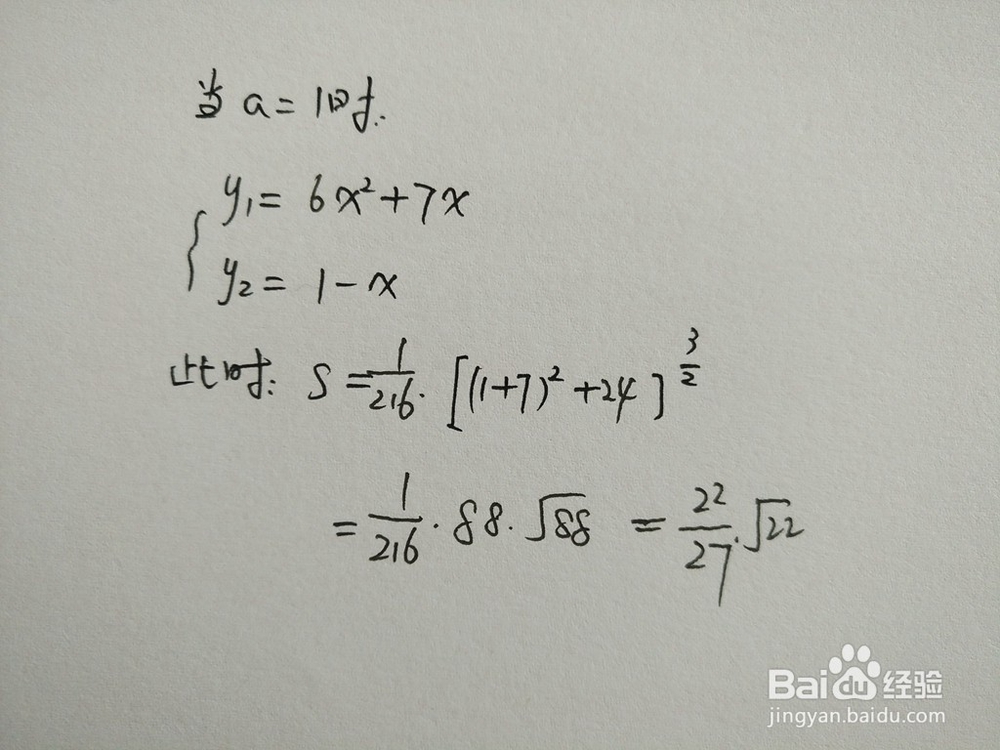 当 a = 1时.
y₁ = 6x² + 7x
y₂ = 1 - x
此时: S = 1/216 · [(1+7)² + 24]^(3/2)
= 1/216 · 88 · √88 = 22/27 · √22
Baidu 经验
jingyan.baidu.com